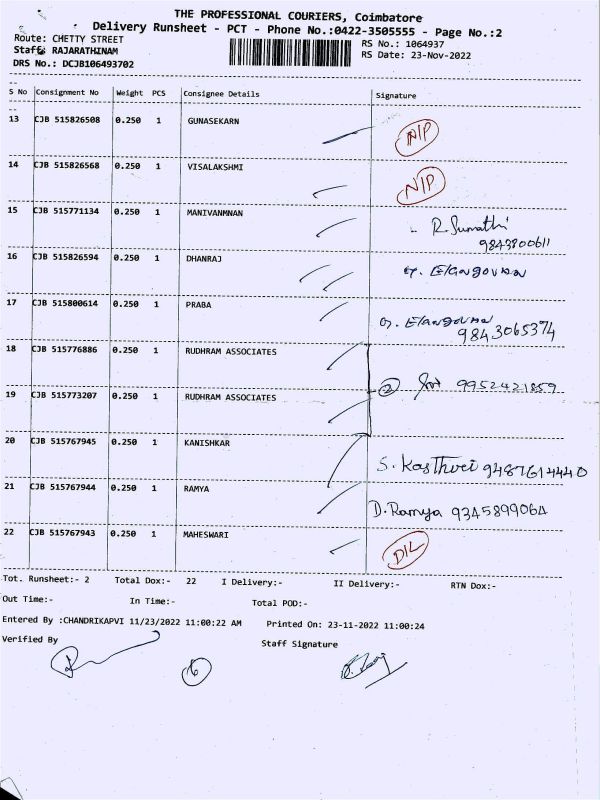 THE PROFESSIONAL COURIERS, Coimbatore
Delivery Runsheet - PCT - Phone No.:0422-3505555 - Page No.:2
Route: CHETTY STREET
RS No.: 1064937
Staff: RAJARATHINAM
RS Date: 23-Nov-2022
DRS No.: DCJB106493702
S No Consignment No Weight PCS Consignee Details Signature
13 CJB 515826508 0.250 1 GUNASEKARN N/P
14 CJB 515826568 0.250 1 VISALAKSHMI N/P
15 CJB 515771134 0.250 1 MANIVANMNAN R. Sumathi
9843800611
16 CJB 515826594 0.250 1 DHANRAJ Elangovan
17 CJB 515800614 0.250 1 PRABA Elangovan
9843065374
18 CJB 515776886 0.250 1 RUDHRAM ASSOCIATES
2 9952421859
19 CJB 515773207 0.250 1 RUDHRAM ASSOCIATES
20 CJB 515767945 0.250 1 KANISHKAR S. Kasthuri 9487614440
21 CJB 515767944 0.250 1 RAMYA D. Ramya 9345899064
22 CJB 515767943 0.250 1 MAHESWARI D/L
Tot. Runsheet:- 2 Total Dox:- 22 I Delivery:- II Delivery:- RTN Dox:-
Out Time:- In Time:- Total POD:-
Entered By :CHANDRIKAPVI 11/23/2022 11:00:22 AM Printed On: 23-11-2022 11:00:24
Verified By Staff Signature
6